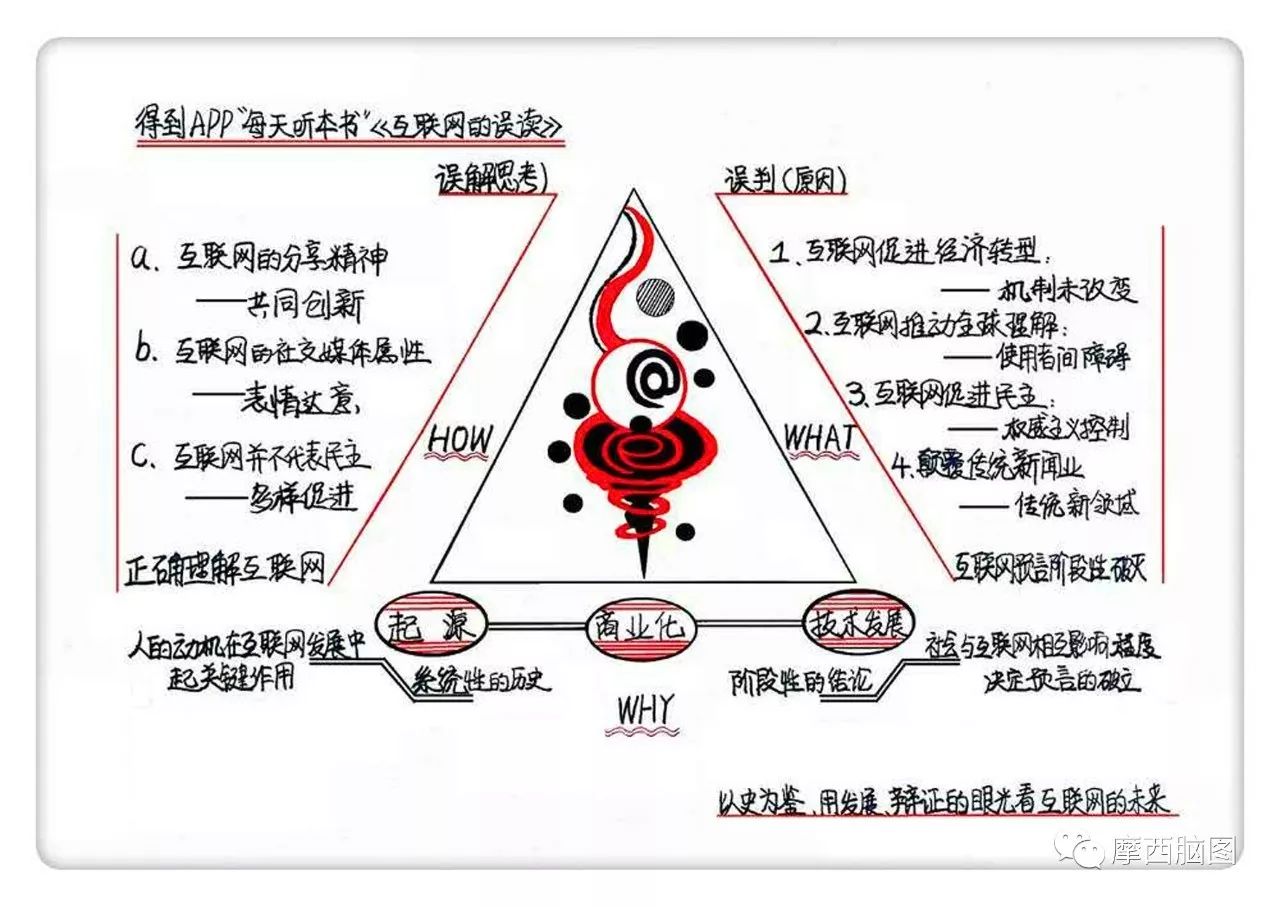 得到APP“每天听本书”《互联网的误读》
误解思考)
a. 互联网的分享精神
——共同创新
b. 互联网的社交媒体属性
——表情达意
c. 互联网并不代表民主
——多样促进
正确理解互联网
HOW
误判(原因)
1、互联网促进经济转型:
——机制未改变
2、互联网推动全球理解:
——使用者间障碍
3、互联网促进民主:
——权威主义控制
4、颠覆传统新闻业
——传统新领域
互联网预言阶段性破灭
WHAT
@
起源
商业化
技术发展
人的动机在互联网发展中
起关键作用
系统性的历史
阶段性的结论
社会与互联网相互影响程度
决定预言的破立
WHY
以史为鉴、用发展、辩证的眼光看互联网的未来
摩西脑图